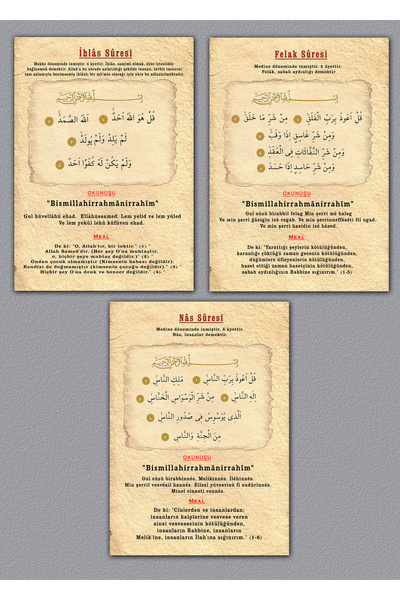 İhlâs Sûresi
Mekke döneminde inmiştir. 4 âyettir. İhlâs, samimi olmak, dine içtenlikle
bağlanmak demektir. Allah'a bu sûrede anlatıldığı şekilde inanan, tevhit inancını
tam anlamıyla benimsemiş ihlâslı bir mü'min olacağı için sûre bu adla anılmaktadır.
قُلْ هُوَ اللّٰهُ اَحَدٌ اَللّٰهُ الصَّمَدُ
لَمْ يَلِدْ وَلَمْ يُولَدْ
وَلَمْ يَكُنْ لَهُ كُفُوًا اَحَدٌ
OKUNUŞU
"Bismillahirrahmânirrahîm"
Gul hüvellâhü ehad. Ellâhüssamed. Lem yelid ve lem yûled
Ve lem yekül lehü küfüven ehad.
MEAL
De ki: "O, Allah'tır, bir tektir." (1)
Allah Samed'dir. (Her şey O'na muhtaçtır,
o, hiçbir şeye muhtaç değildir.)" (2)
Ondan çocuk olmamıştır (Kimsenin babası değildir).
Kendisi de doğmamıştır (kimsenin çocuğu değildir)." (3)
Hiçbir şey O'na denk ve benzer değildir." (4)
Felak Sûresi
Medine döneminde inmiştir. 5 âyettir.
Felâk, sabah aydınlığı demektir
قُلْ اَعُوذُ بِرَبِّ الْفَلَقِ مِنْ شَرِّ مَا خَلَقَ
وَمِنْ شَرِّ غَاسِقٍ اِذَا وَقَبَ
وَمِنْ شَرِّ النَّفَّاثَاتِ فِى الْعُقَدِ
وَمِنْ شَرِّ حَاسِدٍ اِذَا حَسَدَ
OKUNUŞU
"Bismillahirrahmânirrahîm"
Gul eûzü birabbil felag Min şerri mâ haleg
Ve min şerri ğâsigin izâ vegab. Ve min şerrinneffâsâti fil ugad.
Ve min şerri hasidin izâ hâsed.
MEAL
De ki: "Yarattığı şeylerin kötülüğünden,
karanlığı çöktüğü zaman gecenin kötülüğünden,
düğümlere üfleyenlerin kötülüğünden,
haset ettiği zaman hasetçinin kötülüğünden,
sabah aydınlığının Rabbine sığınırım." (1-5)
Nâs Sûresi
Medine döneminde inmiştir. 6 âyettir.
Nâs, insanlar demektir.
قُلْ اَعُوذُ بِرَبِّ النَّاسِ مَلِكِ النَّاسِ
اِلٰهِ النَّاسِ مِنْ شَرِّ الْوَسْوَاسِ الْخَنَّاسِ
اَلَّذِى يُوَسْوِسُ فِى صُدُورِ النَّاسِ
مِنَ الْجِنَّةِ وَالنَّاسِ
OKUNUŞU
"Bismillahirrahmânirrahîm"
Gul eûzü birabbinnês. Melikinnês. İlêhinnês.
Min şerril vesvêsil hannês. Ellezî yüvesvisü fî sudûrinnês.
Minel cinneti vennês.
MEAL
De ki: "Cinlerden ve insanlardan;
insanların kalplerine vesvese veren
sinsi vesvesecinin kötülüğünden,
insanların Rabbine, insanların
Melik'ine, insanların İlah'ına sığınırım." (1-6)